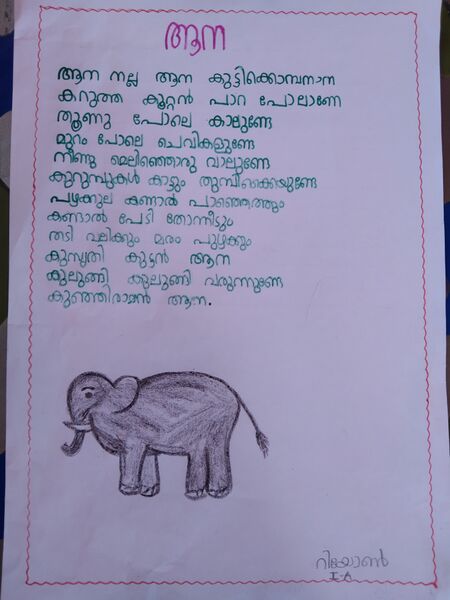 ആന
ആന നല്ല ആന കുട്ടിക്കൊമ്പനാന
കറുത്ത കൂറ്റൻ പാറ പോലാണേ
തൂണു പോലെ കാലുണ്ടേ
മുറം പോലെ ചെവികളുണ്ടേ
നീണ്ടു മെലിഞ്ഞൊരു വാലുണ്ടേ
കുറുമ്പുകൾ കാട്ടും തുമ്പിക്കൈയുണ്ടേ
പഴക്കുല കണ്ടാൽ പാഞ്ഞെത്തും
കണ്ടാൽ പേടി തോന്നീടും
തടി വലിക്കും മരം പുഴക്കും
കുസൃതി കുട്ടൻ ആന
കുലുങ്ങി കുലുങ്ങി വരുന്നുണ്ടേ
കുഞ്ഞിരാമൻ ആന.
റിയോൺ
I-A